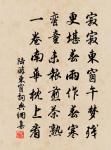 寂寂東窗午夢殘
更堪春雨作春寒
蠻童未報煎茶熟
一卷南華枕上看
陸游東窗詞典網書